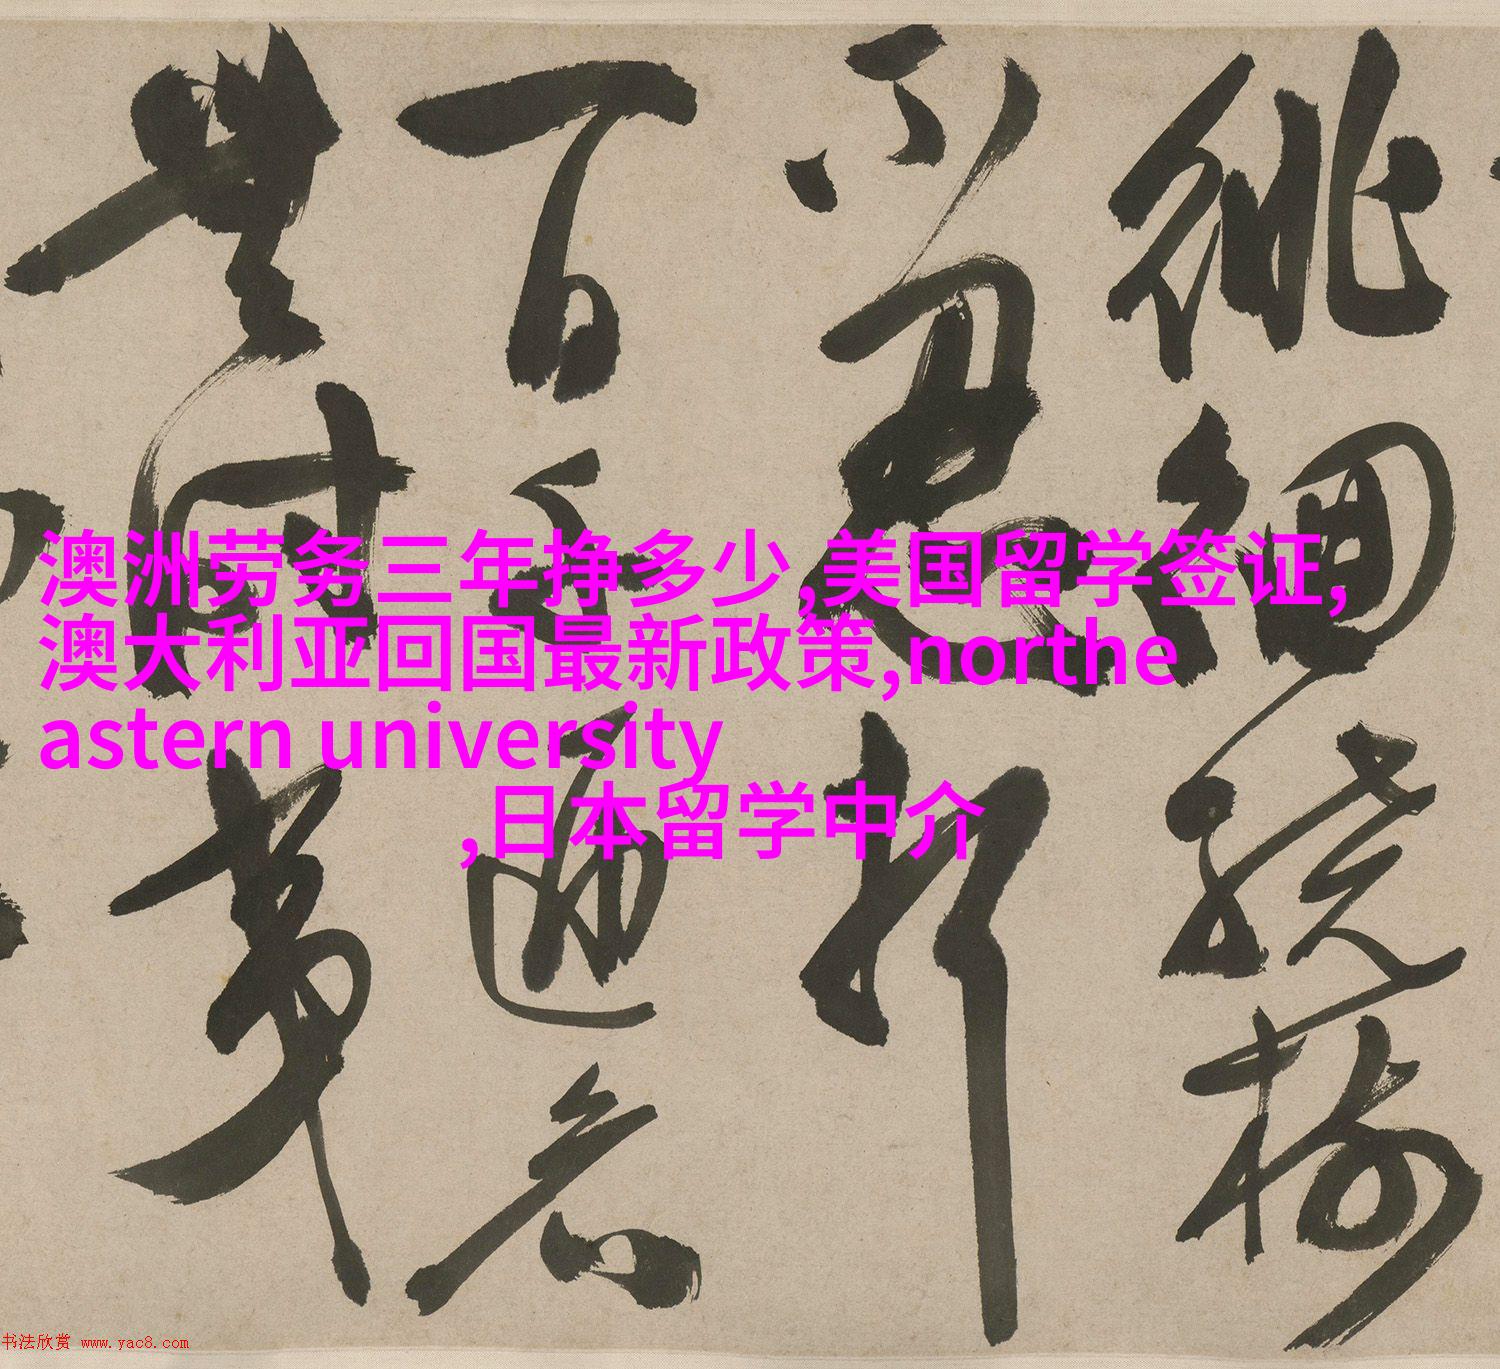 澳洲劳务三年挣多少,美国留学签证,
澳大利亚回国最新政策,northe
astern university
,日本留学中介
徘徊繞樹
不忍折
一日千迊看
無時夷
书法欣赏 www.yac8.com